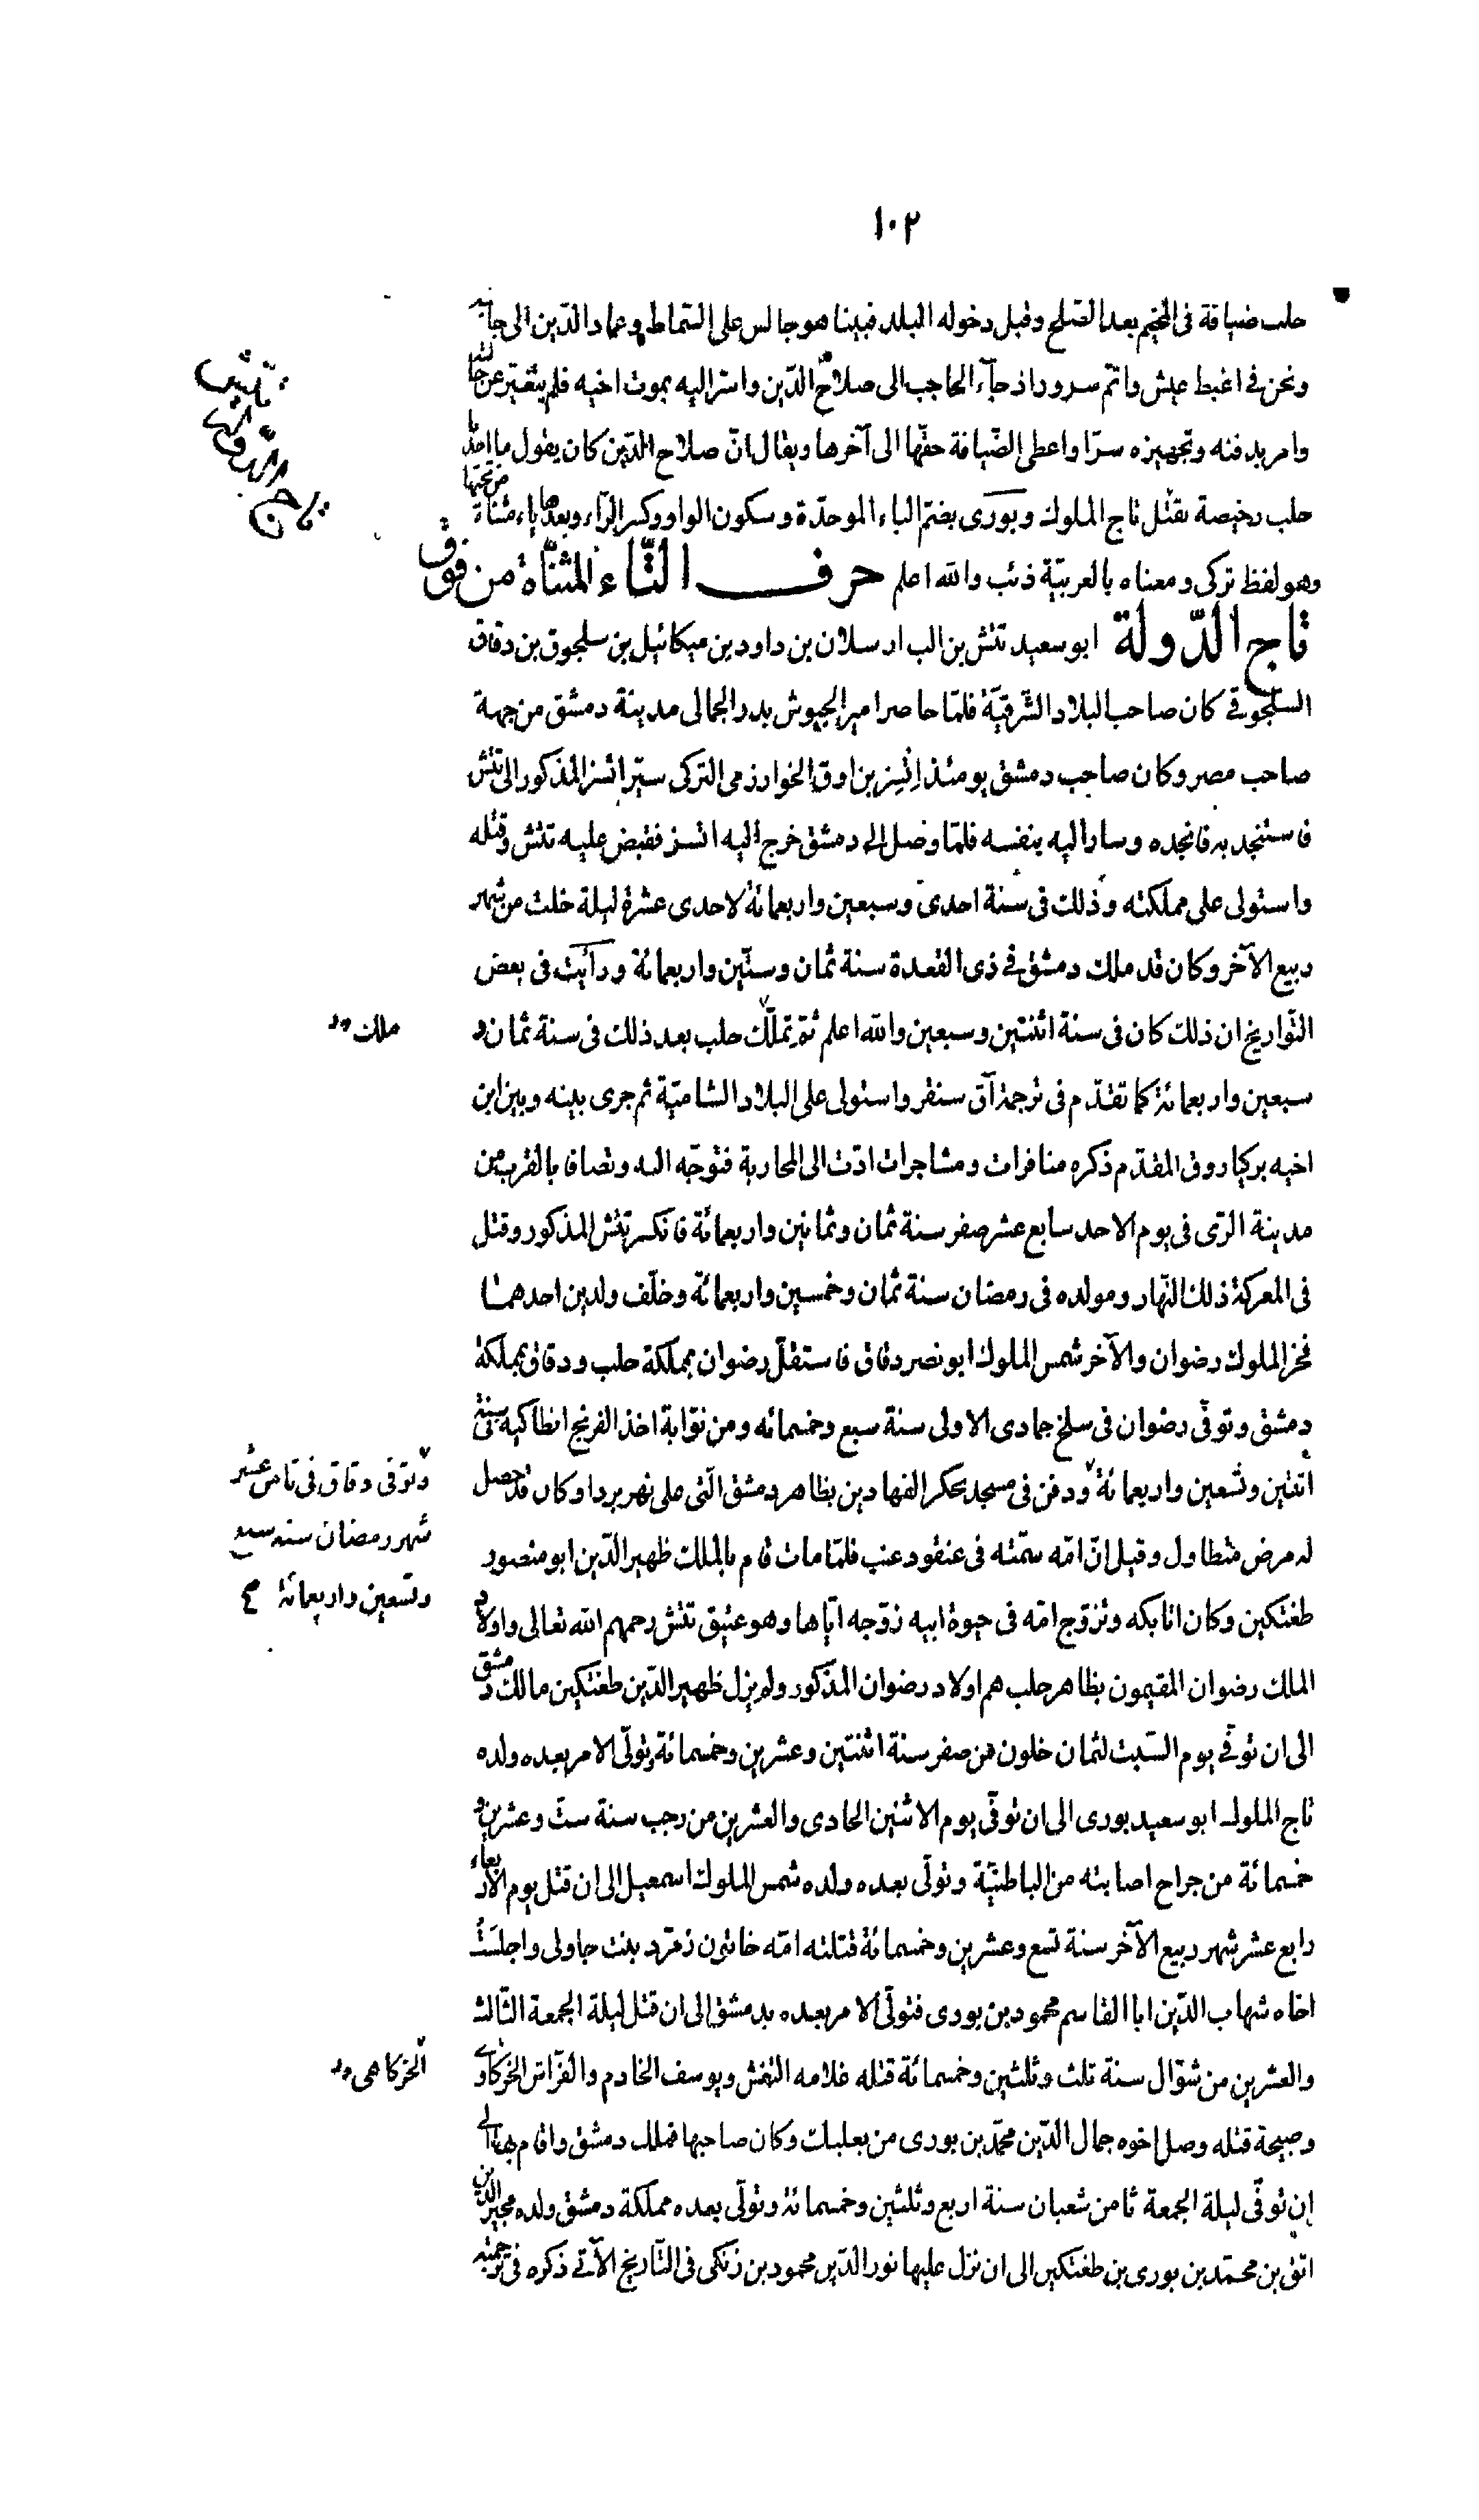 ١٠٢
حلب ضيافة فى المخيم بعد الصّلح وقبل دخوله البلد فبينا هو جالس على السّماط وعماد الدّين الى جانبه
ونحن فى اغبط عيش واتمّ سرور اذ جآء الحاجب الى صلاح الدّين واسرّ اليه بموت اخيه فلم يتغيّر عن حالته
وامر بدفنه وتجهيزه سرّا واعطى الضّيافة حقّها الى آخرها ويقال انّ صلاح الدّين كان يقول ما اخذنا
حلب رخيصة بقتل تاج الملوك وبورى بضمّ الباء الموحّدة وسكون الواو وكسر الرّاء وبعدها ياء مثناة من تحتها
وهو لفظ تركى ومعناه بالعربيّة ذئب والله اعلم حرف التّاء المثنّاة من فوق
تاج الدّولة ابو سعيد تتش بن الب ارسلان بن داود بن ميكائيل بن سلجوق بن دقاق
السلجوقى كان صاحب البلاد الشّرقيّة فلمّا حاصر امير الجيوش بدر الجمالى مدينة دمشق من جهة
صاحب مصر وكان صاحب دمشق يومئذ اتسز بن اوق الخوارزمى التركى سيّر اتسز المذكور الى تتش
فاستنجد به فانجده وسار اليه بنفسه فلمّا وصل الى دمشق خرج اليه اتسز فقبض عليه تتش وقتله
واستولى على مملكته وذلك فى سنة احدى وسبعين واربعمائة لاحدى عشرة ليلة خلت من شهر
ربيع الآخر وكان قد ملك دمشق فى ذى القعدة سنة ثمان وستّين واربعمائة ورأيت فى بعض
التّواريخ ان ذلك كان فى سنة اثنتين وسبعين والله اعلم ثم تملّك حلب بعد ذلك فى سنة ثمان و
ملك
سبعين واربعمائة كما تقدّم فى ترجمة آق سنقر واستولى على البلاد الشاميّة ثم جرى بينه وبين ابن
اخيه بركياروق المقدّم ذكره منافرات ومشاجرات ادّت الى المحاربة فتوجّه اليه وتصافا بالقرب من
مدينة الرّى فى يوم الاحد سابع عشر صفر سنة ثمان وثمانين واربعمائة فانكسر تتش المذكور وقتل
فى المعركة ذلك النّهار ومولده فى رمضان سنة ثمان وخمسين واربعمائة وخلّف ولدين احدهما
فخر الملوك رضوان والآخر شمس الملوك ابو نصر دقاق فاستقلّ رضوان بمملكة حلب ودقاق بمملكة
دمشق وتوفّى رضوان فى سلخ جمادى الاولى سنة سبع وخمسمائه ومن نوّابة اخذ الفرنج انطاكيه فى سنة
اثنتين وتسعين واربعمائة ودفن فى مسجد بحكر الفهادين بظاهر دمشق الّتى على نهر بردا وكان قد حصل
وتوفى دقاق فى ثامن عشر
شهر رمضان سنه سبع
وتسعين واربعمائة
له مرض متطاول وقيل انّ امّه سمّته فى عنقود عنب فلمّا مات قام بالملك ظهير الدّين ابو منصور
طغتكين وكان اتابكه وتزوّج امّه فى حيوة ابيه زوّجه ايّاها وهو عتيق تتش رحمهم الله تعالى واولاد
الملك رضوان المقيمون بظاهر حلب هم اولاد رضوان المذكور ولم يزل ظهير الدّين طغتكين مالك دمشق
الى ان توفّى يوم السّبت لثمان خلون من صفر سنة اثنتين وعشرين وخمسمائة وتولّى الامر بعده ولده
تاج الملوك ابو سعيد بورى الى ان توفّى يوم الاثنين الحادى والعشرين من رجب سنة ستّ وعشرين و
خمسمائة من جراح اصابته من الباطنيّة وتولّى بعده ولده شمس الملوك اسمعيل الى ان قتل يوم الاربعاء
رابع عشر شهر ربيع الآخر سنة تسع وعشرين وخمسمائة قتلته امّه خاتون زمرّد بنت جاولى واجلست
اخاه شهاب الدّين ابا القاسم محمود بن بورى فتولّى الامر بعده بدمشق الى ان قتل ليلة الجمعة الثّالث
والعشرين من شوّال سنة ثلث وثلثين وخمسمائة قتله غلامه النغش ويوسف الخادم والفرّاش الخركاوى
الخركاهى
وصبيحة قتله وصل اخوه جمال الدّين محمّد بن بورى من بعلبك وكان صاحبها فملك دمشق واقام بها الى
ان توفّى ليلة الجمعة ثامن شعبان سنة اربع وثلثين وخمسمائة وتولّى بعده مملكة دمشق ولده مجير الدّين
اتق بن محمّد بن بورى بن طغتكين الى ان نزل عليها نور الدّين محمود بن زنكى فى التّاريخ الآتى ذكره فى ترجمته